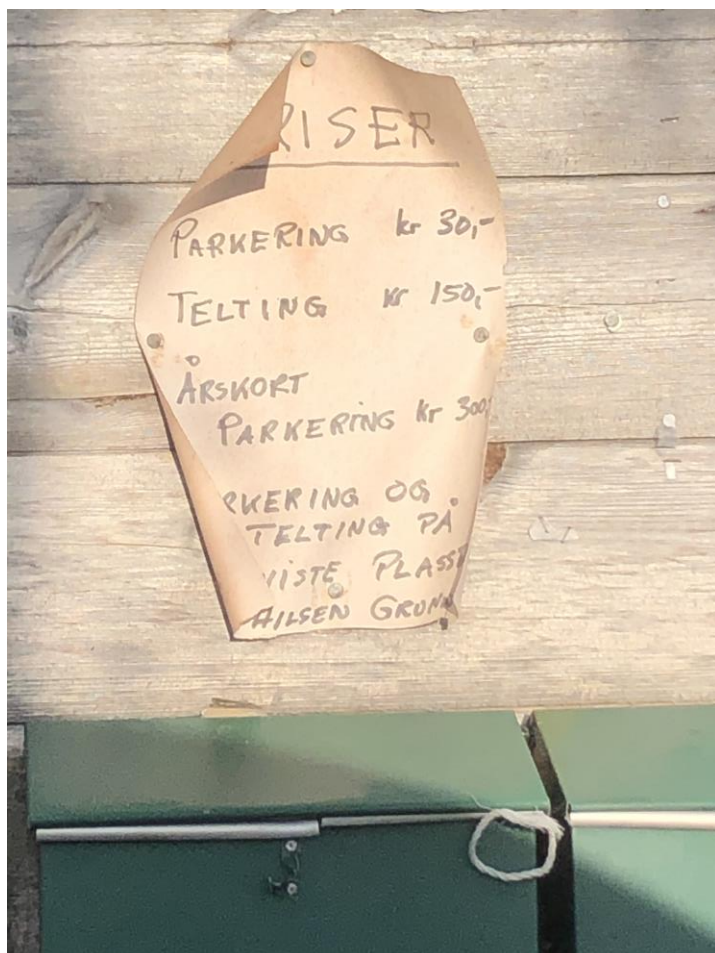 RISER
PARKERING kr 30,-
TELTING kr 150,-
ÅRSKORT
PARKERING kr 300,
RKERING OG
TELTING PÅ
VISTE PLASS
GRUNN